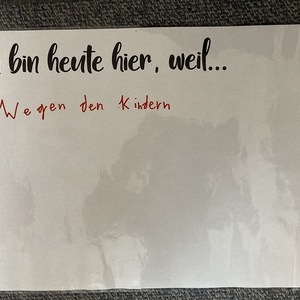 bin heute hier, weil...
Wegen den Kindern